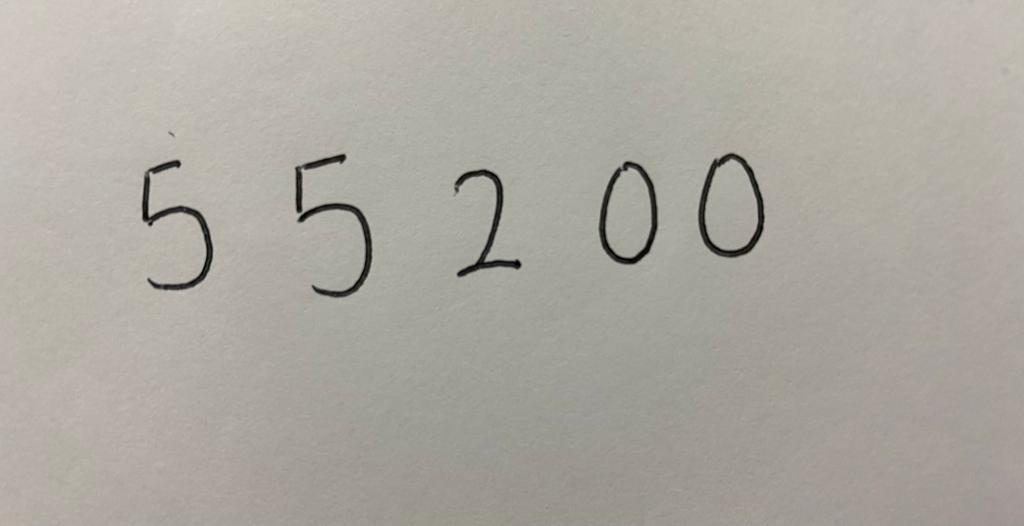 5 5 2 0 0